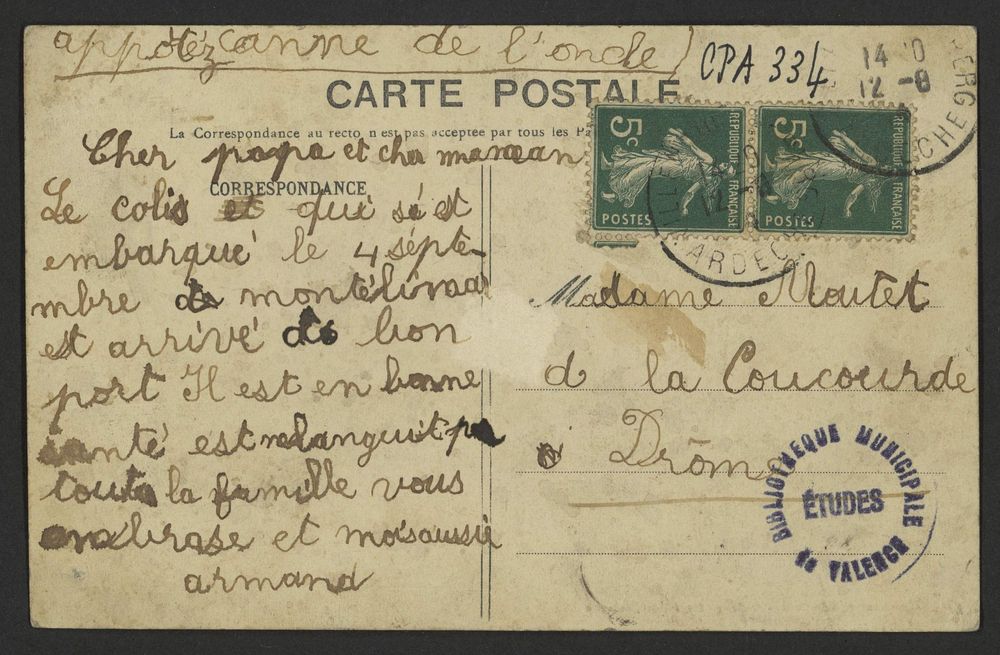 appôtéz canne de l'onde
CPA 334
CARTE POSTALE
La Correspondance au recto n'est pas acceptée par tous les
Cher papa et cher maman
CORRESPONDANCE
Le colis et qui sé est
embarqué le 4 sépte-
mbre de montélimar
est arrivé de bon
port Il est en bonne
santé est relanguit pa
toute la famille vous
embrase et moi aussi
armand
5c REPUBLIQUE FRANÇAISE POSTES
5c REPUBLIQUE FRANÇAISE POSTES
14 10
12 -8
ARDECHE
Madame Moutet
à la Coucourde
Drôme
BIBLIOTHEQUE MUNICIPALE
ÉTUDES
de VALENCE